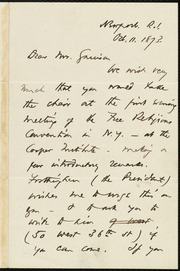 Newport. R.I.
Oct. 11. 1873.
Dear Mr. Garrison
We wish very
much that you would take
the chair at the first evening
meeting of the Free Religious
Convention in N.Y. — at the
Cooper Institute — making a
few introductory remarks.
Frothingham (the President)
wishes me to urge this on
you — & to ask you to
write to him
(50 West 36th St) if
you can come. If you